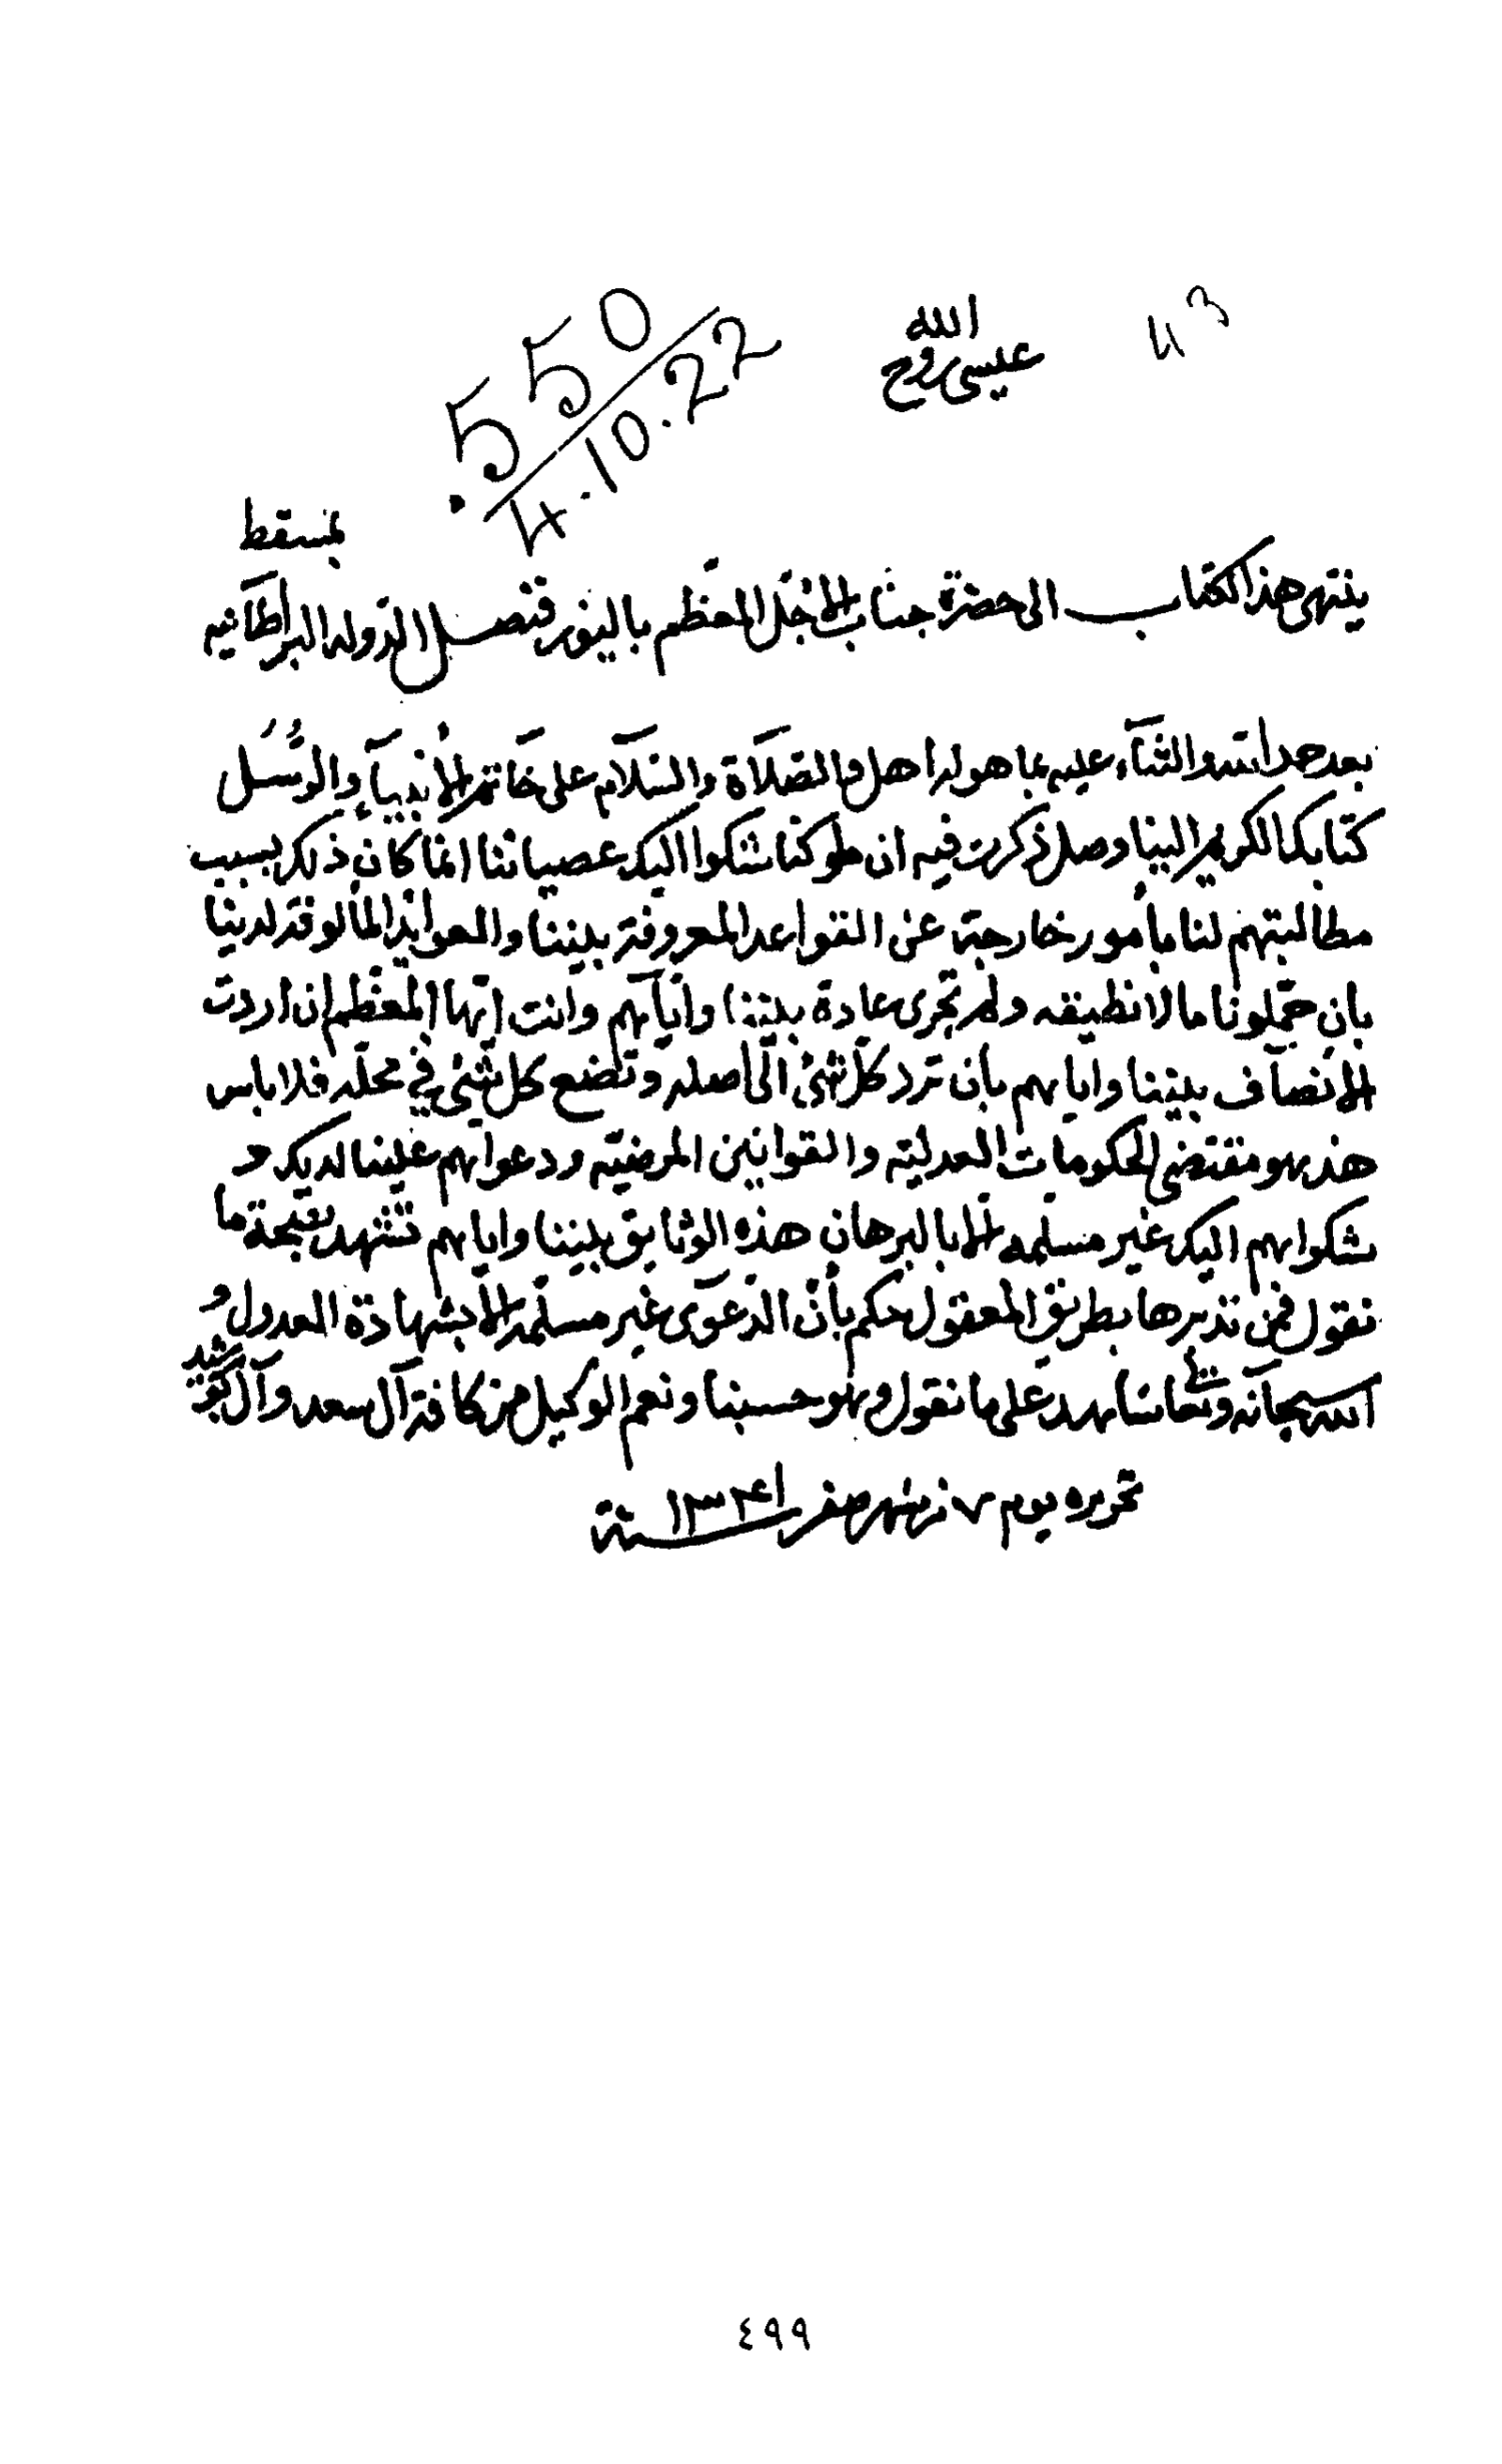 43
الله
عيسى روح
550
4.10.22
بمسقط
ينتهى هذا الكتاب الى حضرة جناب الاجل المعظم باليوز قنصل الدوله البرطانيه
بعد حمد الله والثنآء عليه بما هو له اهل والصلاة والسلام على خاتم الأنبيآء والرسل
كتابكم الكريم الينا وصل ذكرت فيه ان ملوكنا شكوا اليك عصياننا انما كان ذلك بسبب
مطالبتهم لنا بأمور خارجة عن القواعد المعروفة بيننا والعوايد المألوفة لدينا
بان حملونا ما لا نطيقه ولم تجرى عادة بيننا واياهم وانت ايها المعظم ان اردت
الانصاف بيننا واياهم بأن ترد كل شئ الى اصله وتضع كل شئ في محله فلا باس
هذ هو مقتضى الحكومات العدليه والقوانين المرضيه ودعواهم علينا لديك و
شكواهم اليك غير مسلمه الا بالبرهان هذه الوثايق بيننا واياهم تشهد بصحة ما
نقول فمن تدبرها بطريق المعقول حكم بأن الدعوى غير مسلمه الا بشهادة العدول و
الله سبحانه وتعالى شاهد على ما نقول وهو حسبنا ونعم الوكيل من كافة آل سعد وآل
رشيد
تحريره يوم ٧ من شهر صفر ١٣٤١ سنة
٤٩٩